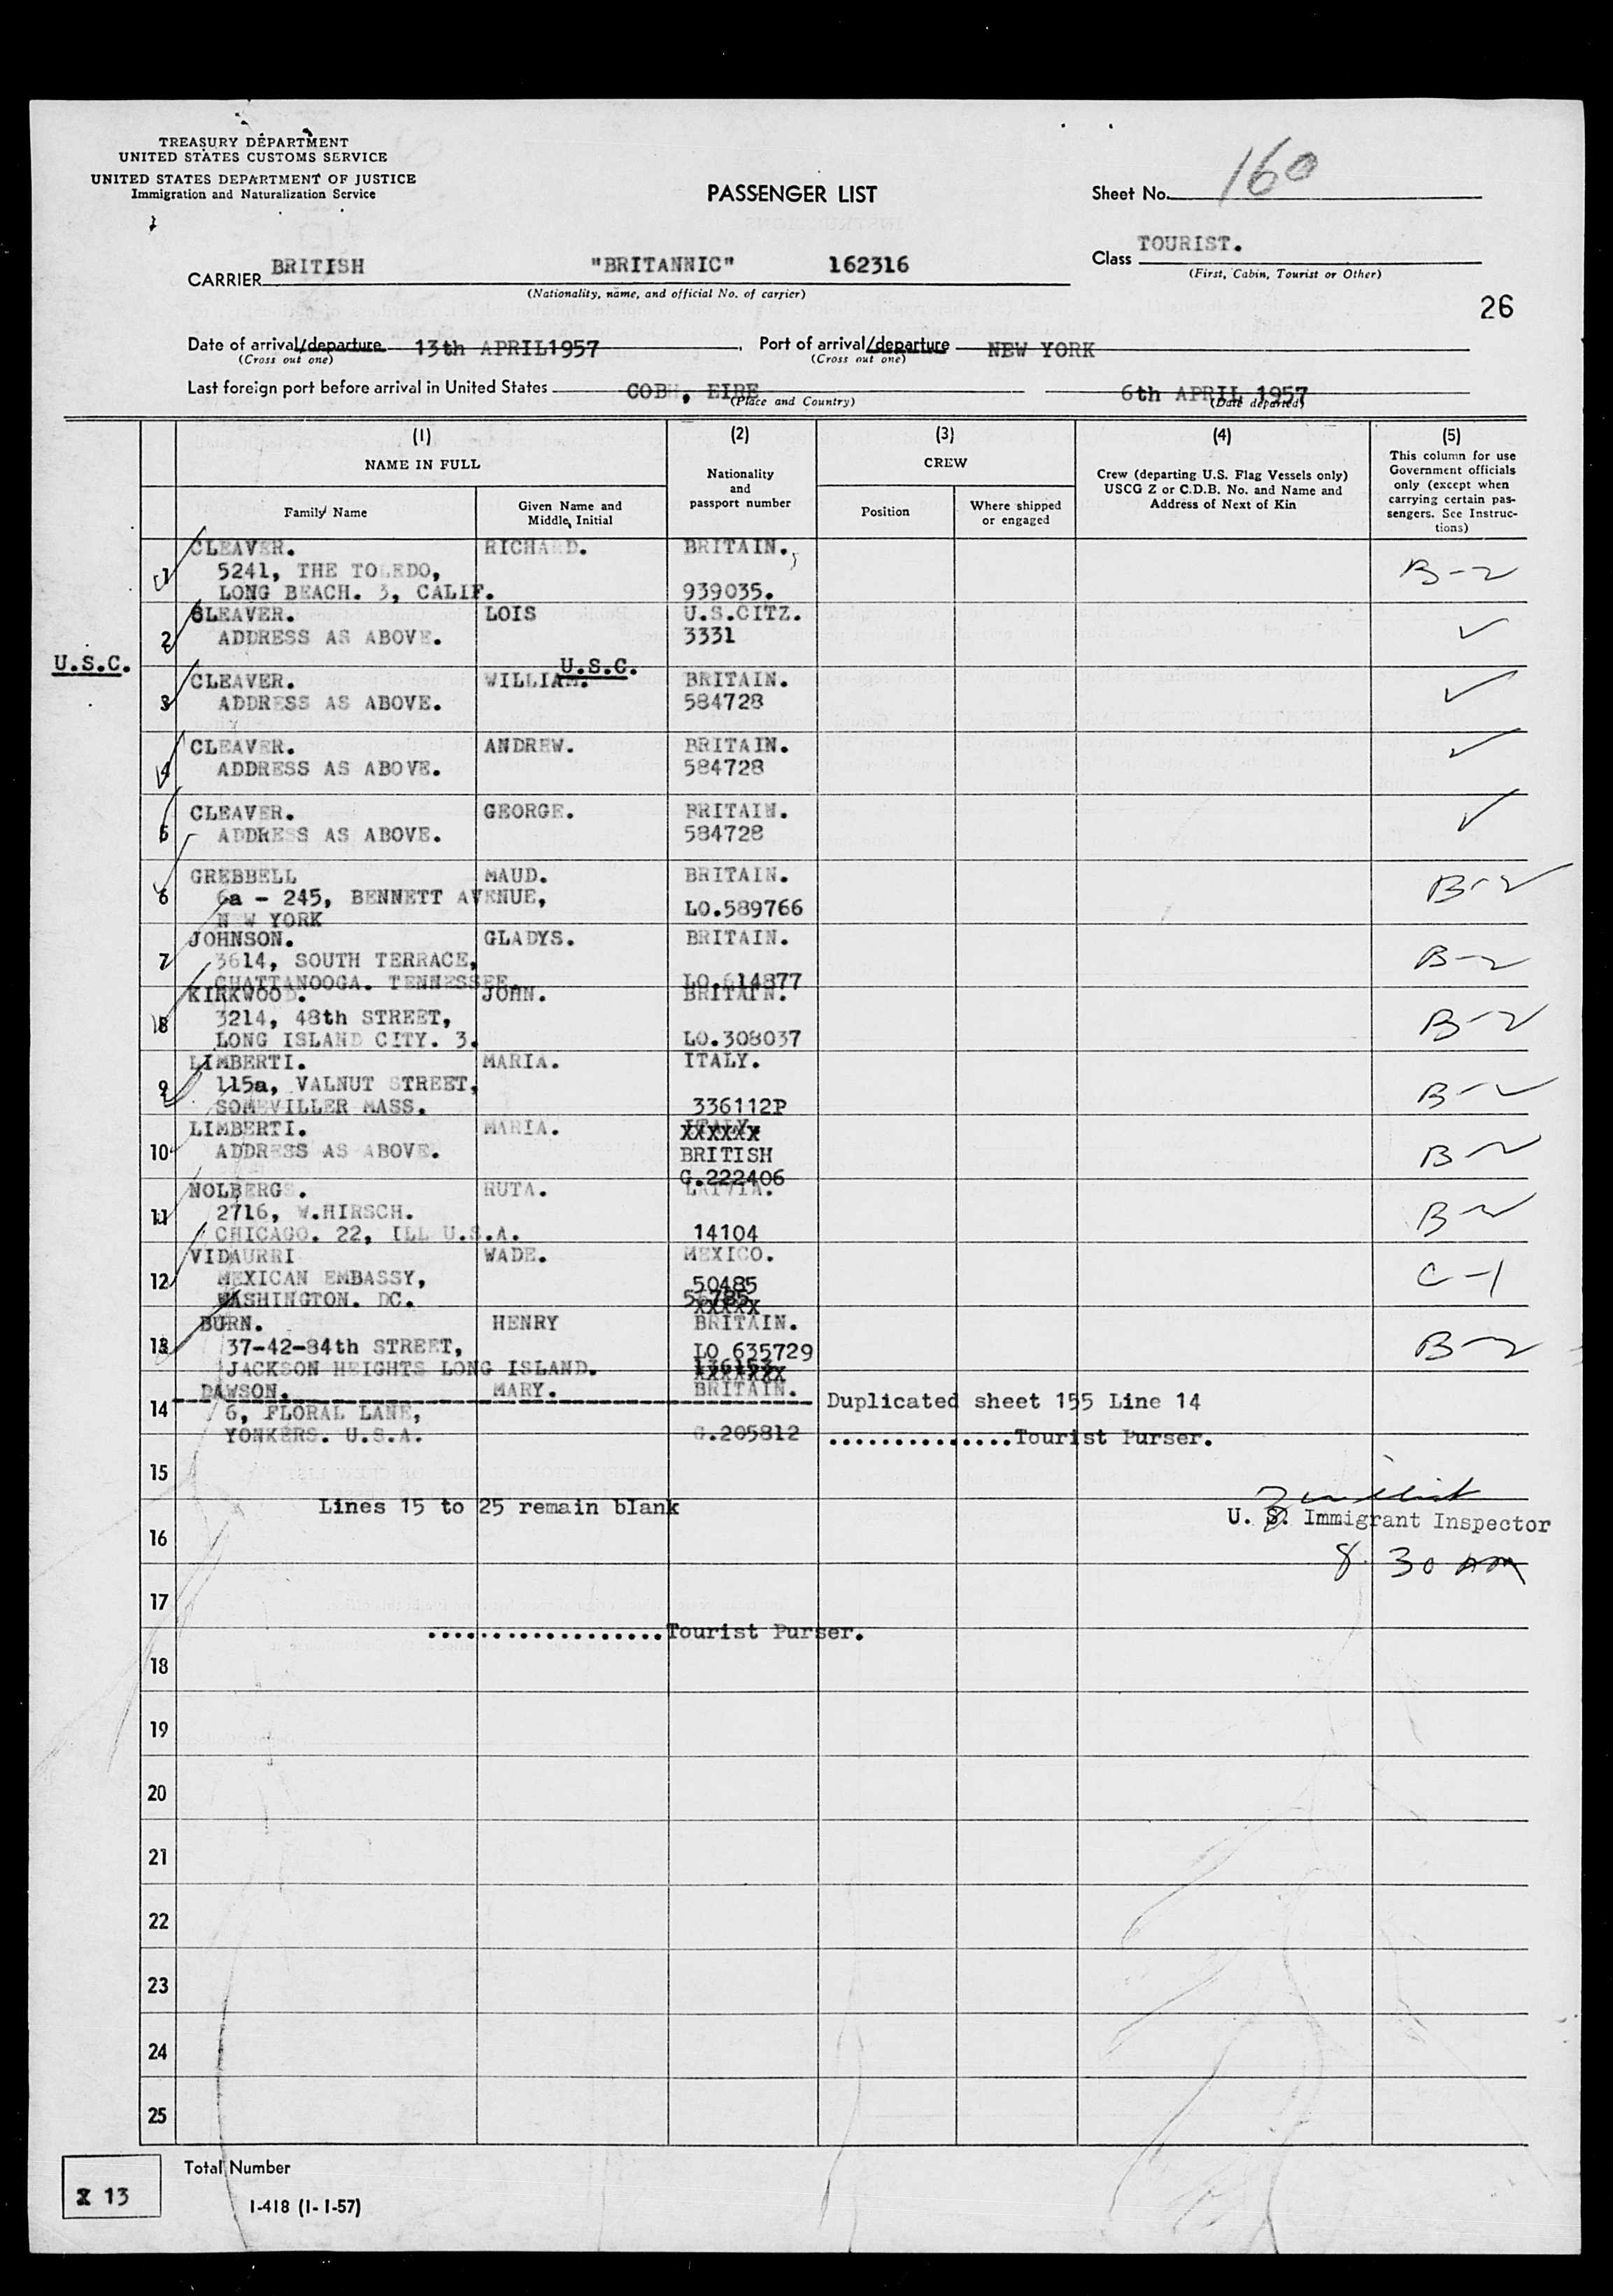 TREASURY DEPARTMENT
UNITED STATES CUSTOMS SERVICE
UNITED STATES DEPARTMENT OF JUSTICE
Immigration and Naturalization Service
PASSENGER LIST
Sheet No. 160
CARRIER BRITISH "BRITANNIC" 162316
(Nationality, name, and official No. of carrier)
Class TOURIST.
(First, Cabin, Tourist or Other)
26
Date of arrival/departure 13th APRIL1957
(Cross out one)
Port of arrival/departure NEW YORK
(Cross out one)
Last foreign port before arrival in United States COBH, EIRE 6th APRIL 1957
(Place and Country) (Date departed)
(1) (2) (3) (4) (5)
NAME IN FULL
Family Name
Given Name and Middle Initial
Nationality and passport number
CREW
Position
Where shipped or engaged
Crew (departing U.S. Flag Vessels only)
USCG Z or C.D.B. No. and Name and
Address of Next of Kin
This column for use
Government officials
only (except when
carrying certain pas-
sengers. See Instruc-
tions)
1 CLEAVER. RICHARD. BRITAIN. B-2
5241, THE TOLEDO,
LONG BEACH. 3, CALIF. 939035.
2 CLEAVER. LOIS U.S.CITZ.
ADDRESS AS ABOVE. 3331
U.S.C. U.S.C.
3 CLEAVER. WILLIAM. BRITAIN.
ADDRESS AS ABOVE. 584728
4 CLEAVER. ANDREW. BRITAIN.
ADDRESS AS ABOVE. 584728
5 CLEAVER. GEORGE. BRITAIN.
ADDRESS AS ABOVE. 584728
6 GREBBELL MAUD. BRITAIN. B-2
6a - 245, BENNETT AVENUE,
NEW YORK LO.589766
7 JOHNSON. GLADYS. BRITAIN. B-2
3614, SOUTH TERRACE,
CHATTANOOGA. TENNESSEE. LO.614877
8 KIRKWOOD. JOHN. BRITAIN. B-2
3214, 48th STREET,
LONG ISLAND CITY. 3. LO.308037
9 LIMBERTI. MARIA. ITALY. B-2
115a, VALNUT STREET,
SOMEVILLER MASS. 336112P
10 LIMBERTI. MARIA. ITALY. B-2
ADDRESS AS ABOVE. BRITISH
G.222406
11 NOLBERGS. RUTA. LATVIA. B-2
2716, W.HIRSCH.
CHICAGO. 22, ILL U.S.A. 14104
12 VIDAURRI WADE. MEXICO. C-1
MEXICAN EMBASSY, 50485
WASHINGTON. DC.
13 BURN. HENRY BRITAIN. B-2
37-42-84th STREET, LO 635729
JACKSON HEIGHTS LONG ISLAND.
14 DAWSON. MARY. BRITAIN. Duplicated sheet 155 Line 14
6, FLORAL LANE,
YONKERS. U.S.A. G.205812 ...............Tourist Purser.
15
Lines 15 to 25 remain blank
U. S. Immigrant Inspector
16
8.30 AM
17
..................Tourist Purser.
18
19
20
21
22
23
24
25
13
Total Number
I-418 (1-1-57)